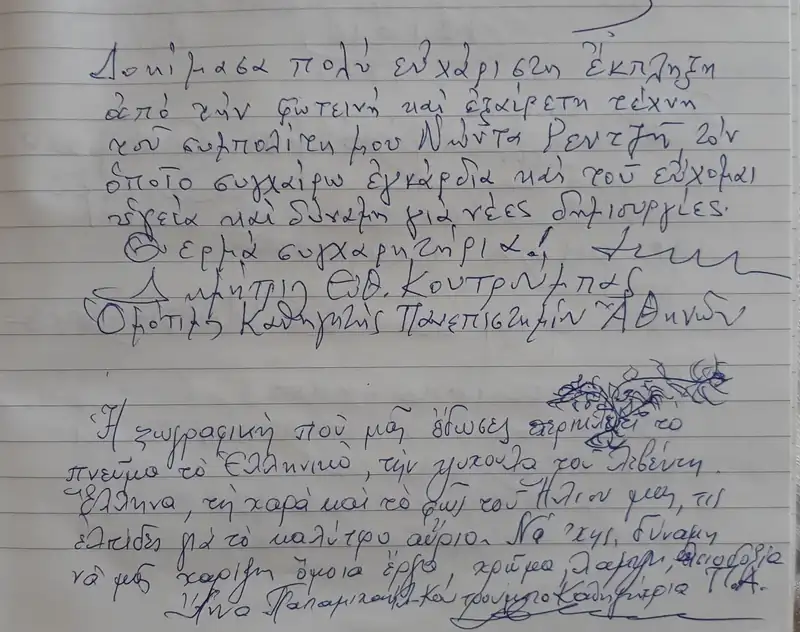 Δοκίμασα πολύ εὐχάριστη ἔκπληξη
ἀπό τήν φωτεινή καί ἐξαίρετη τέχνη
τοῦ συμπολίτη μου Ρεντζῆ, τόν
ὁποῖο συγχαίρω ἐγκάρδια καί τοῦ εὔχομαι
ὑγεία καί δύναμη γιά νέες δημιουργίες.
Θερμά συγχαρητήρια!
Δημήτρις Εὐθ. Κουτρούμπας
Ὁμότιμς Καθηγητής Πανεπιστημίου Ἀθηνῶν
Ἡ ζωγραφική πού μᾶς ἔδωσες τό
πνεῦμα τό Ἑλληνικό, τήν ψυχούλα τοῦ λεβέντη
Ἕλληνα, τή χαρά καί τό φῶς τοῦ Ἥλιου μας, τις
ἐλπίδες γιά τό καλύτερο αὔριο. Νά 'χης δύναμη
νά μᾶς χαρίζη ὅμοια ἔργα, χρῶμα, λάμψη, αἰσιοδοξία
Παπαμιχαήλ-Κουτρούμπα Καθηγήτρια Π.Α.